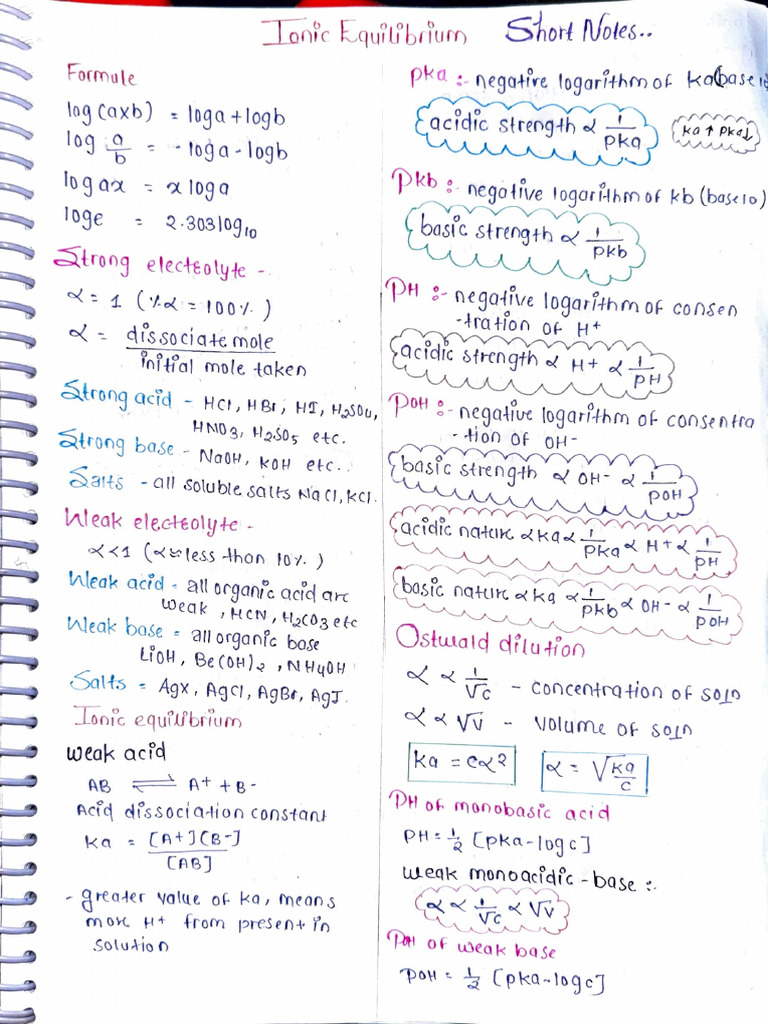 Ionic Equilibrium Short Notes..
Formule
log(axb) = loga+logb
log a/b = - loga-logb
logax = x loga
loge = 2.303log10
Strong electeolyte -
α = 1 (%α = 100%)
α = dissociate mole / initial mole taken
Strong acid - HCl, HBr, HI, H2SO4,
HNO3, H2SO5 etc.
Strong base - NaOH, KOH etc..
Salts - all soluble salts NaCl, KCl.
Weak electeolyte -
α<1 (α less than 10%)
Weak acid - all organic acid are
weak, HCN, H2CO3 etc
Weak base = all organic base
LiOH, Be(OH)2, NH4OH
Salts = AgX, AgCl, AgBr, AgI.
Ionic equilibrium
weak acid
AB ⇌ A+ + B-
Acid dissociation constant
Ka = [A+][B-] / [AB]
- greater value of Ka, means
more H+ from present in
solution
pka :- negative logarithm of ka(base10
acidic strength α 1/pka
ka↑ pka↓
pkb :- negative logarithm of kb (base10)
basic strength α 1/pkb
PH :- negative logarithm of consen
-tration of H+
acidic strength α H+ α 1/pH
POH :- negative logarithm of consentra
-tion of OH-
basic strength α OH- α 1/pOH
acidic nature α ka α 1/pka α H+ α 1/pH
basic nature α ka α 1/pkb α OH- α 1/pOH
Ostwald dilution
α α 1/√c - concentration of soln
α α √v - volume of soln
ka = cα²
α = √ka/c
PH of monobasic acid
PH = 1/2 [pka-logc]
weak monoacidic-base :-
α α 1/√c α √v
POH of weak base
POH = 1/2 [pka-logc]